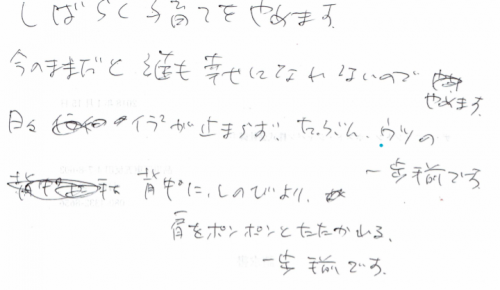 しばらく子育てをやめます。
今のままだと誰も幸せになれないので
やめます。
日々 イライラが止まらず、たぶん、ウツの
一歩手前です。
背中に、しのびより、
肩をポンポンとたたかれる、
一歩手前です。